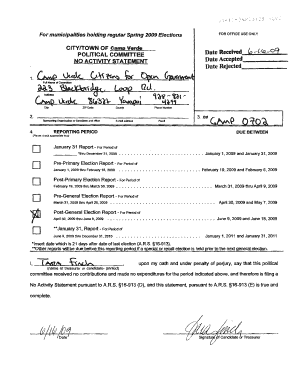 For municipalities holding regular Spring 2009 Elections
FOR OFFICE USE ONLY
CITY/TOWN OF Camp Verde
POLITICAL COMMITTEE
NO ACTIVITY STATEMENT
Date Received 6-16-09
Date Accepted
Date Rejected
1. Camp Verde Citizens for Open Government
Full Name of Committee
223 Blackbridge Loop Rd.
Address
Camp Verde 86322 Yavapai
City ZIP Code County Phone Number
2.
3. ID# CAMP 0702
4. REPORTING PERIOD DUE BETWEEN
January 31 Report - For Period of
January 1, 2009 and January 31, 2009
Pre-Primary Election Report - For Period of
February 19, 2009 and February 26, 2009
Post-Primary Election Report - For Period of
March 31, 2009 thru April 9, 2009
Pre-General Election Report - For Period of
April 30, 2009 and May 7, 2009
X Post-General Election Report - For Period of
April 30, 2009 thru June 8, 2009 June 9, 2009 and June 18, 2009
**January 31, Report - For Period of
June 9, 2009 thru December 31, 2010 January 1, 2011 and January 31, 2011
*Insert date which is 21 days after date of last election (A.R.S. §16-913).
**Other reports will be due before this reporting period if a special or recall election is held prior to the next general election.
I, Tara Finch upon my oath and under penalty of perjury, say that this political
(name of treasurer or candidate- printed)
committee received no contributions and made no expenditures for the period indicated above, and therefore is filing a
No Activity Statement pursuant to A.R.S. §16-913 (G), and this statement, pursuant to A.R.S. §16-913 (E) is true and
complete.
6/16/09
Date Signature of Candidate or Treasurer